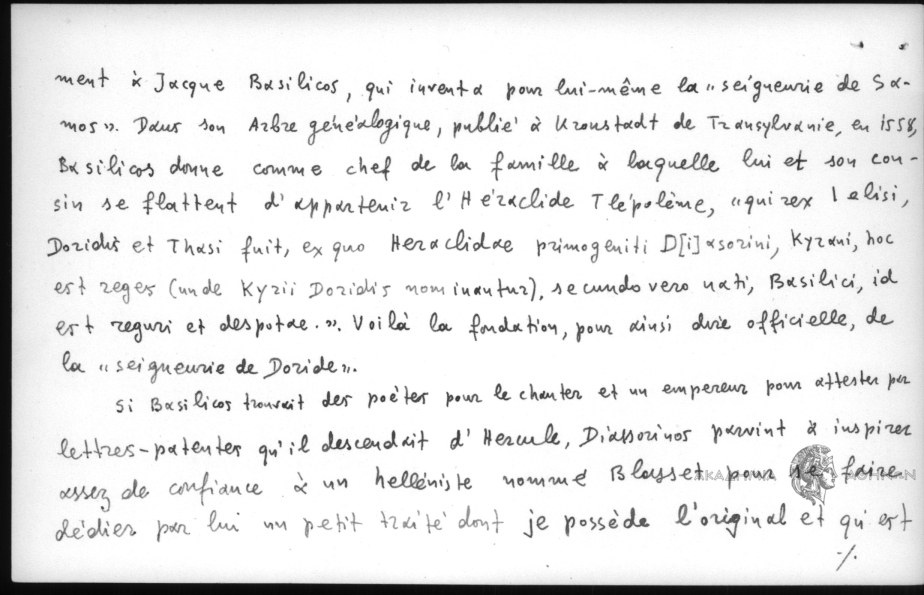 ment à Jacque Basilicos, qui inventa pour lui-même la « seigneurie de Sa-
mos ». Dans son Arbre généalogique, publié à Kronstadt de Transylvanie, en 1558,
Basilicos donne comme chef de la famille à laquelle lui et son cou-
sin se flattent d'appartenir l'Héraclide Tlépolème, « qui rex Ialisi,
Doridis et Thasi fuit, ex quo Heraclidae primogeniti D[i]asorini, Kyrani, hoc
est reges (unde Kyrii Doridis nominantur), secundo vero nati, Basilici, id
est reguri et despotae. ». Voilà la fondation, pour ainsi dire officielle, de
la « seigneurie de Doride ».
Si Basilicos trouvait des poètes pour le chanter et un empereur pour attester par
lettres-patentes qu'il descendait d'Hercule, Diassorinos parvint à inspirer
assez de confiance à un helléniste nommé Blasset pour se faire
dédier par lui un petit traité dont je possède l'original et qu'est
·/.
ΑΚΑΔΗΜΙΑ ΑΘΗΝΩΝ